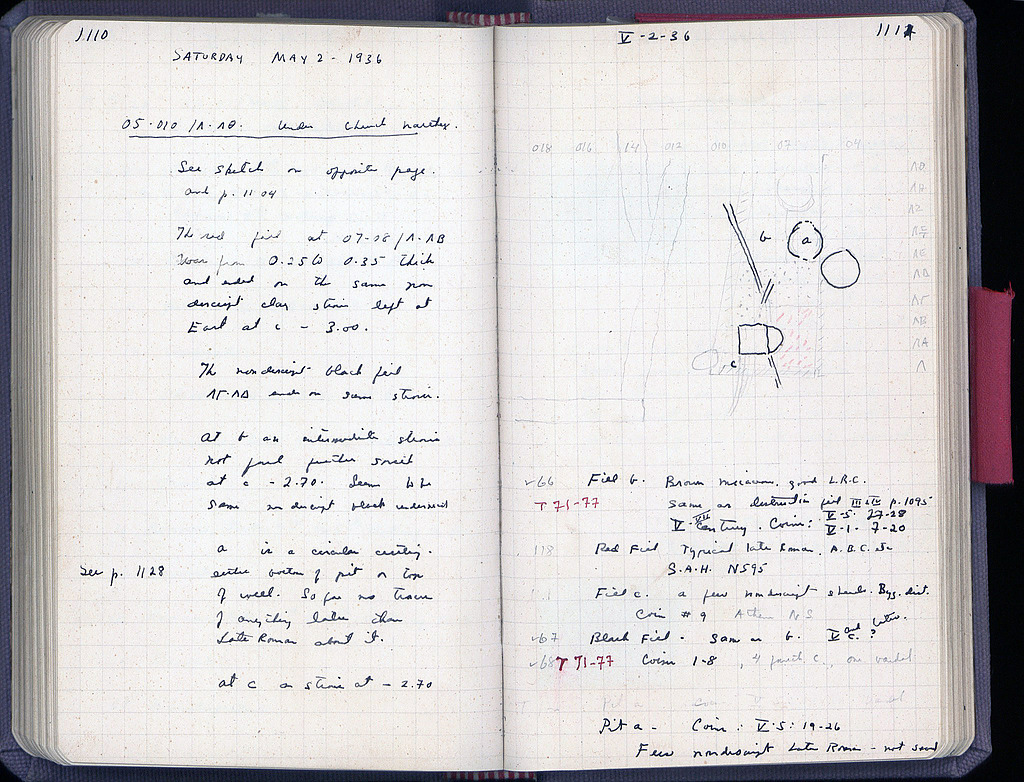 1110
SATURDAY MAY 2 - 1936
05-010 / Λ-ΛΘ. Under Church narthex.
See sketch on opposite page.
and p. 1104
The red fill at 07-08 / Λ-ΛΒ
was from 0.25 to 0.35 thick
and ended on the same non
descript clay strosis left at
East at c - 3.00.
The nondescript black fill
ΛΓ-ΛΔ ends on same strosis.
At b an intermediate strosis
not found further south
at c - 2.70. Seems to be
same nondescript black underneath
a is a circular cutting.
either bottom of pit or top
See p. 1128
of well. So far no traces
of anything later than
Late Roman about it.
at c a strosis at - 2.70
V-2-36
1111
018 016 14 012 010 07 04
ΛΘ
ΛΗ
ΛΖ
ΛΕ
ΛΔ
ΛΓ
ΛΒ
ΛΑ
Λ
b
a
c
66 Fill b. Brown micaceous, good L.R.C.
T 71-77 Same as destruction fill III & IV p. 1095
V-VII Century. Coins: V-5: 27-28
V-1: 7-20
118 Red Fill Typical late Roman, A.B.C. etc
S.A.H. NS95
Fill c. a few nondescript sherds. Byz. dist.
Coin # 9 Athens NS
67 Black Fill - same as b. V c. and later. ?
68 T 71-77 Coins 1-8, 4 c., one vandal
Pit a - Coins: V-5: 19-26
Few nondescript Late Roman - not saved